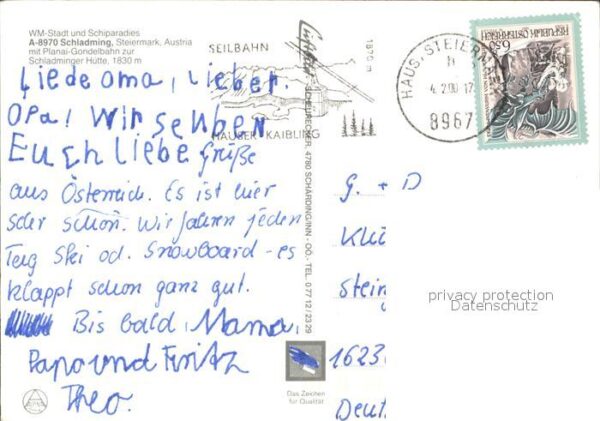 WM-Stadt und Schiparadies
A-8970 Schladming, Steiermark, Austria
mit Planai-Gondelbahn zur
Schladminger Hütte, 1830 m
SEILBAHN
1870 m
HAUSER KAIBLING
HAUS, STEIERM
4. 2.00-17
8967
REPUBLIK ÖSTERREICH
6.50
Liede oma, Lieber
Opa! Wir senben
Euch liebe Grüße
aus Österreich. Es ist hier
sehr schön. Wir fahren jeden
Tag Ski od. Snowboard - es
klappt schon ganz gut.
Bis bald, Mama,
Papa und Fritz
Theo.
SCHEURECKER, 4780 SCHÄRDING/INN - OÖ. - TEL. 07712/2329
G. + D
Klü
Stein
1623
Deut
privacy protection
Datenschutz
Das Zeichen
für Qualität